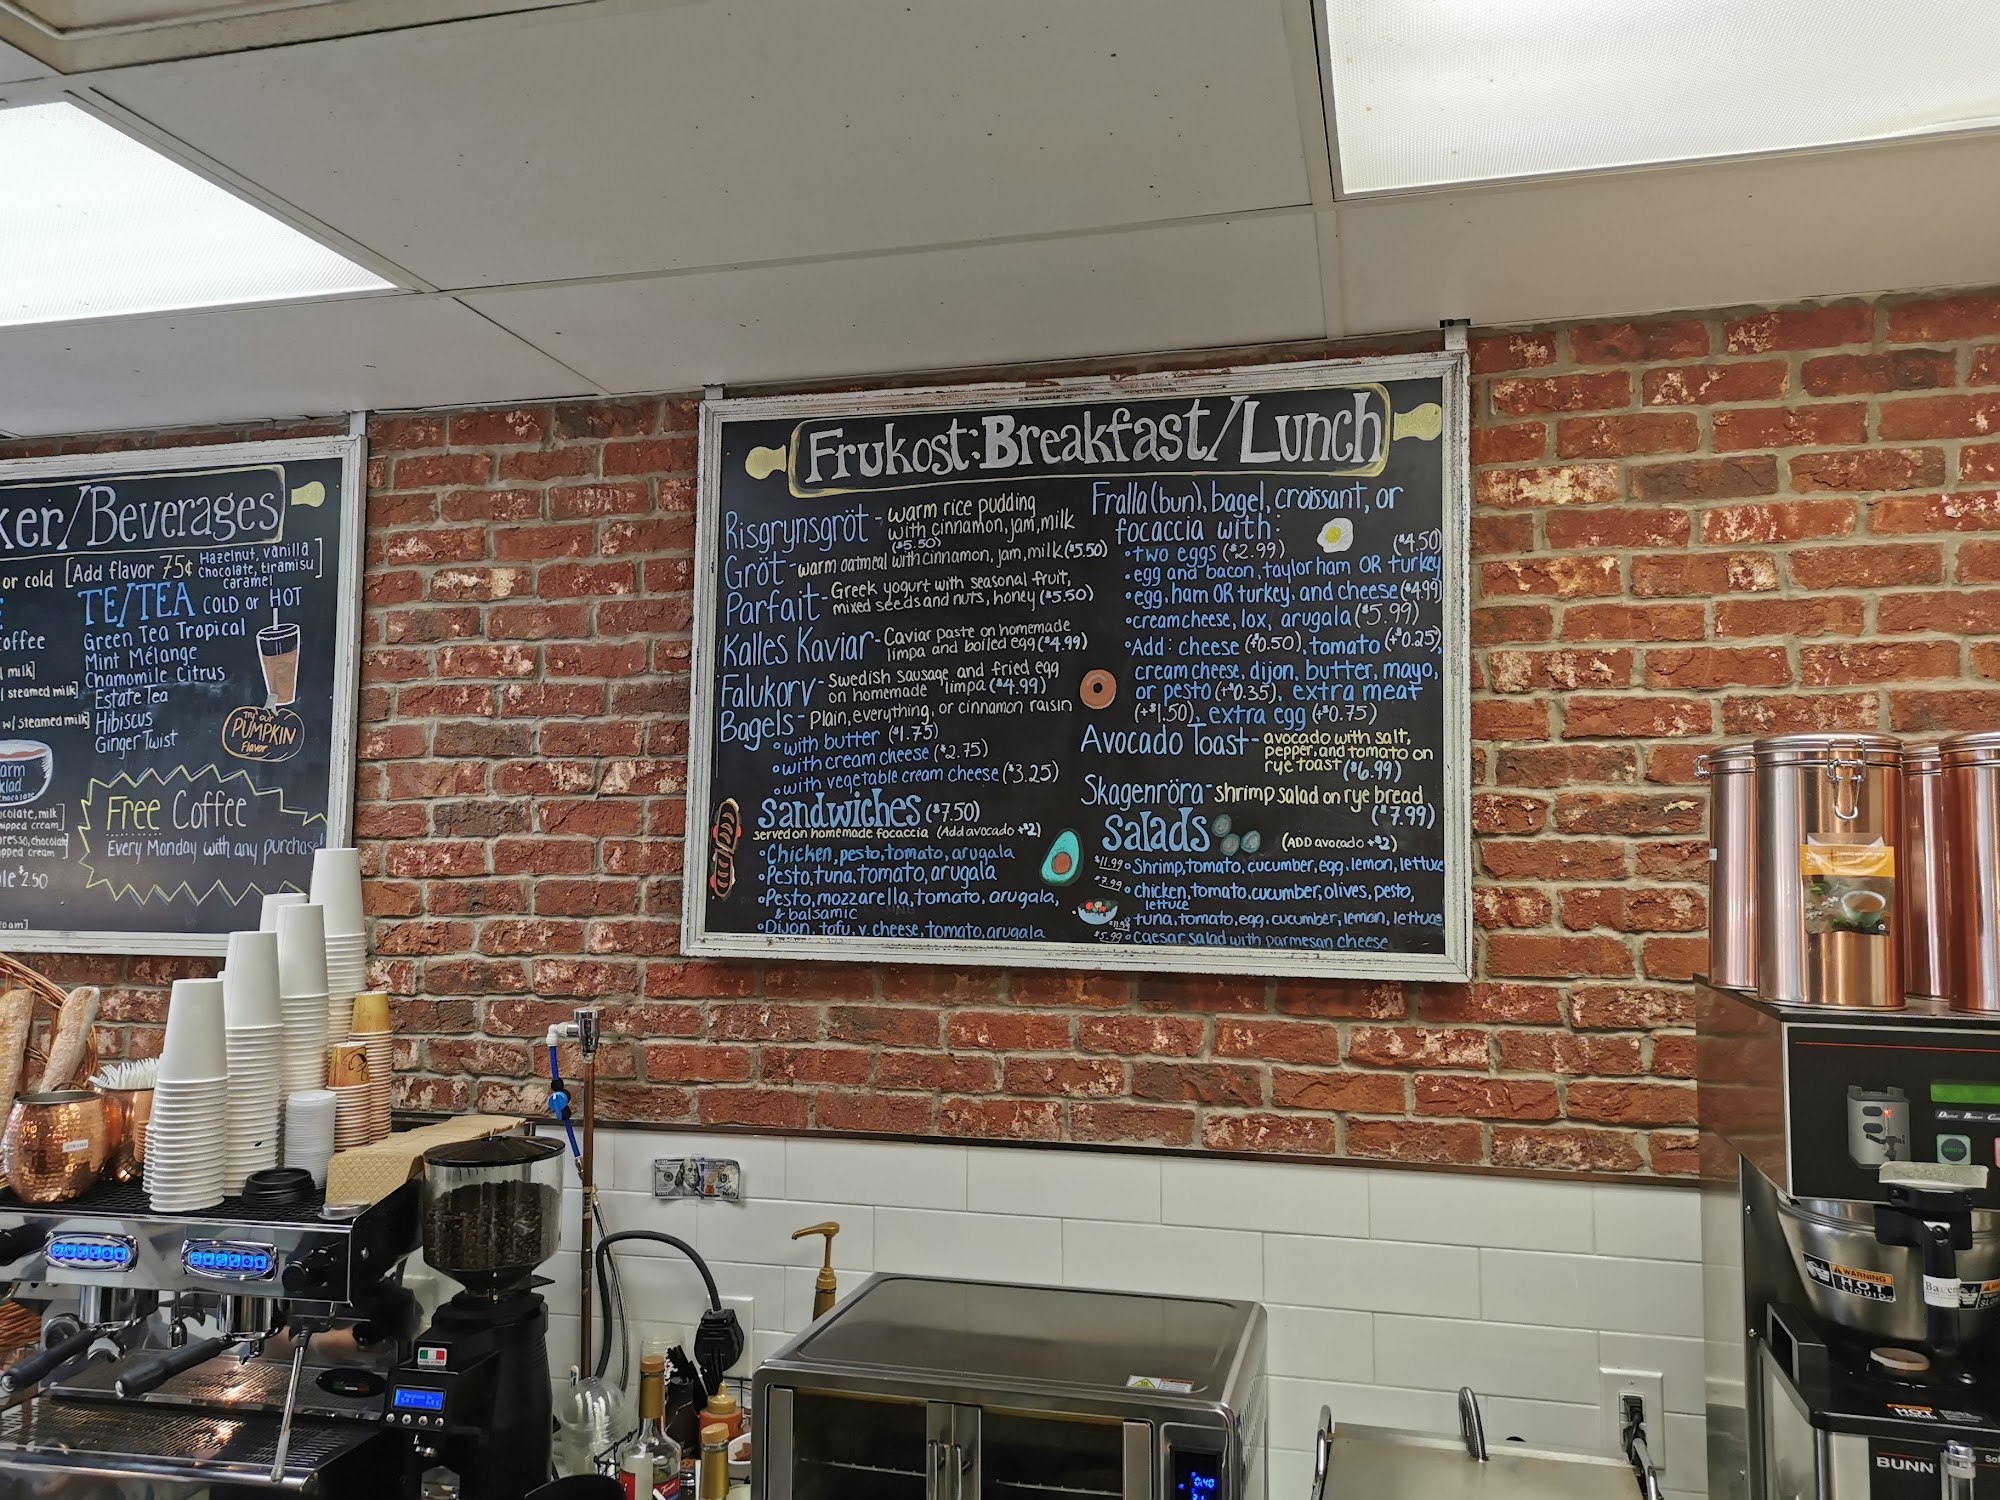 ker/Beverages
or cold [Add flavor 75¢ Hazelnut, vanilla
chocolate, tiramisu]
caramel
TE/TEA COLD or HOT
Green Tea Tropical
Mint Mélange
Chamomile Citrus
Estate Tea
Hibiscus
Ginger Twist
coffee
milk]
steamed milk]
w/ steamed milk]
Try our
PUMPKIN
Flavor
Free Coffee
Every Monday with any purchase
$2.50
Frukost: Breakfast/Lunch
Risgrynsgröt - warm rice pudding
with cinnamon, jam, milk
($5.50)
Gröt - warm oatmeal with cinnamon, jam, milk ($5.50)
Parfait - Greek yogurt with seasonal fruit,
mixed seeds and nuts, honey ($5.50)
Kalles Kaviar - Caviar paste on homemade
limpa and boiled egg ($4.99)
Falukorv - Swedish sausage and fried egg
on homemade limpa ($4.99)
Bagels - Plain, everything, or cinnamon raisin
• with butter ($1.75)
• with cream cheese ($2.75)
• with vegetable cream cheese ($3.25)
Sandwiches ($7.50)
served on homemade focaccia (Add avocado +$2)
• Chicken, pesto, tomato, arugala
• Pesto, tuna, tomato, arugala
• Pesto, mozzarella, tomato, arugala,
& balsamic
• Dijon, tofu, v. cheese, tomato, arugala
Fralla (bun), bagel, croissant, or
focaccia with:
• two eggs ($2.99)
($4.50)
• egg and bacon, taylor ham OR turkey
• egg, ham OR turkey, and cheese ($4.99)
• cream cheese, lox, arugala ($5.99)
• Add: cheese (+0.50), tomato (+$0.25),
cream cheese, dijon, butter, mayo,
or pesto (+$0.35), extra meat
(+$1.50), extra egg (+$0.75)
Avocado Toast - avocado with salt,
pepper, and tomato on
rye toast ($6.99)
Skagenröra - shrimp salad on rye bread
($7.99)
Salads
(ADD avocado +$2)
$11.99 • Shrimp, tomato, cucumber, egg, lemon, lettuce
$7.99 • chicken, tomato, cucumber, olives, pesto,
lettuce
$11.99 • tuna, tomato, egg, cucumber, lemon, lettuce
$5.99 • Caesar salad with parmesan cheese
WARNING
HOT
LIQUID
BUNN